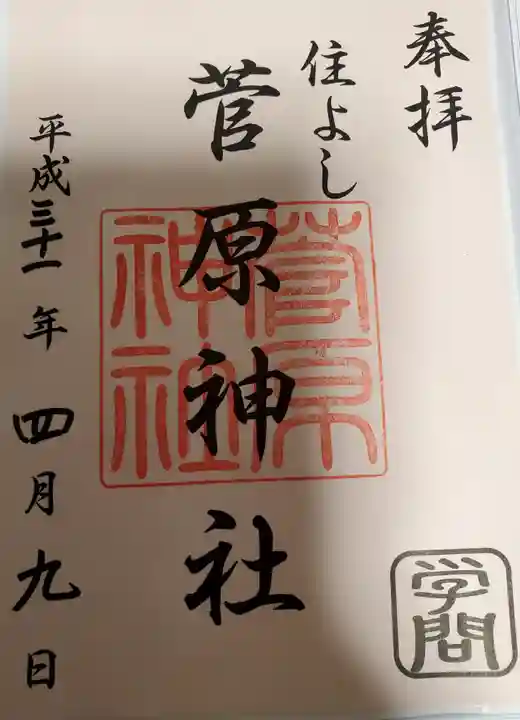 奉拝
住よし
菅原神社
菅原
神社
平成三十一年四月九日
学問